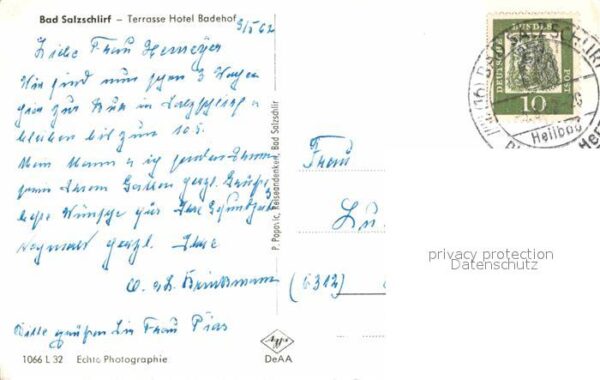 Bad Salzschlirf – Terrasse Hotel Badehof
3/5 62
Liebe Frau Hemeyer
Wir sind nun schon 3 Wochen
hier zur Kur in Salzschlirf u
bleiben bis zum 10.5.
Mein Mann u ich senden Ihnen
Ihrem Gatten herzl. Grüße
beste Wünsche für Ihre Gesundheit
Nochmals herzl. Ihre
W. u. L. Brinkmann
Bitte grüßen Sie Frau Pias
1066 L 32 Echte Photographie
P. Popovic, Reiseandenken, Bad Salzschlirf
Agfa
DeAA
DEUTSCHE BUNDESPOST
10
(16) BAD SALZSCHLIRF
Heilbad
Frau
Lu
(6312)
privacy protection
Datenschutz